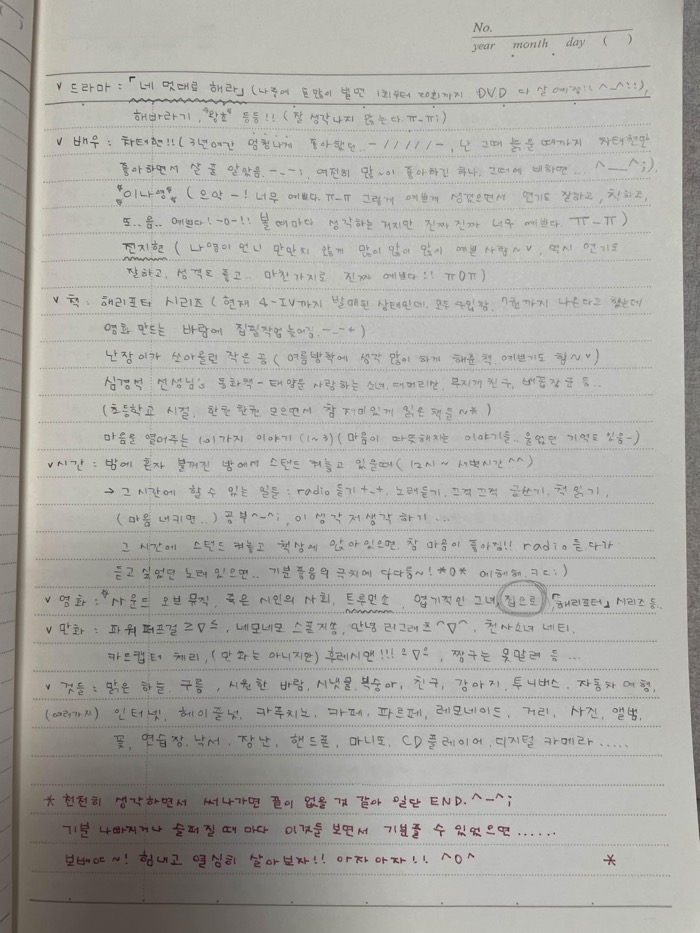 No.
year month day ( )
v 드라마 : 「네 멋대로 해라」 (나중에 돈 많이 벌면 1회부터 20회까지 DVD 다 살 예정!! ^_^;;),
해바라기, "황혼" 등등!! (잘 생각나지 않는다 π-π;)
v 배우 : 차태현!! (3년여간 엄청나게 좋아했던.. -/////-, 난 그때 늙을 때까지 차태현만
좋아하면서 살 줄 알았음. -_-;, 여전히 많~이 좋아하긴 하나, 그때에 비하면... ^__^;),
"이나영" (으악-! 너무 예쁘다. π-π 그렇게 예쁘게 생겼으면서 연기도 잘하고, 착하고,
또..음.. 예쁘다! -0-!! 볼 때마다 생각하는 거지만 진짜 진짜 너무 예쁘다. π-π)
전지현 ( 나영이 언니 만만치 않게 많이 많이 많이 예쁜 사람~v, 역시 연기도
잘하고, 성격도 좋고.. 마찬가지로 진짜 예쁘다!! π0π)
v 책 : 해리포터 시리즈 ( 현재 4-IV까지 발매된 상태인데, 모두 구입함. 7권까지 나온다고 했는데
영화 만드는 바람에 집필작업 늦어짐. -_-+)
난장이가 쏘아올린 작은 공 ( 여름방학에 생각 많이 하게 해준 책. 예쁘기도 함~v)
심경석 선생님's 동화책 - 태양을 사랑하는 소녀, 대머리산, 무지개 친구, 배꼽장군 등..
(초등학교 시절, 한권 한권 모으면서 참 재미있게 읽은 책들~*)
마음을 열어주는 101가지 이야기 (1~3) ( 마음이 따뜻해지는 이야기들.. 울었던 기억도 있음~)
v 시간 : 밤에 혼자 불꺼진 방에서 스탠드 켜놓고 있을때 ( 12시~ 새벽시간 ^^)
→ 그 시간에 할 수 있는 일들 : radio 듣기 +_+, 노래듣기, 끄적끄적 글쓰기, 책 읽기,
( 마음 내키면..) 공부^-^;, 이 생각 저 생각 하기 ...
그 시간에 스탠드 켜놓고 책상에 앉아있으면, 참 마음이 좋아짐!! radio 듣다가
듣고 싶었던 노래 있으면.. 기분 좋음의 극치에 다다름~! *0* 에헤헤, ㅋㄷ;)
v 영화 : "사운드 오브 뮤직, 죽은 시인의 사회, 트루먼쇼, 엽기적인 그녀, 집으로, 「해리포터」 시리즈 등..
v 만화 : 파워 퍼프걸 ≥▽≤, 네모네모 스폰지송, 안녕 러그래츠 ^▽^, 천사소녀 네티,
카드캡터 체리, (만화는 아니지만) 후레시맨!!! ≡▽≡, 짱구는 못말려 등 ...
v 것들 : 맑은 하늘, 구름, 시원한 바람, 시냇물, 복숭아, 친구, 강아지, 투니버스, 자동차 여행,
(여러가지) 인터넷, 헤이즐넛, 카푸치노, 카페, 파르페, 레모네이드, 거리, 사진, 앨범,
꽃, 연습장, 낙서, 장난, 핸드폰, 마니또, CD 플레이어, 디지털 카메라 .....
* 천천히 생각하면서 써나가면 끝이 없을 것 같아 일단 END. ^-^;
기분 나빠지거나 슬퍼질 때 마다 이것들 보면서 기분풀 수 있었으면 ......
보배야~! 힘내고 열심히 살아보자!! 아자아자!! ^0^ *